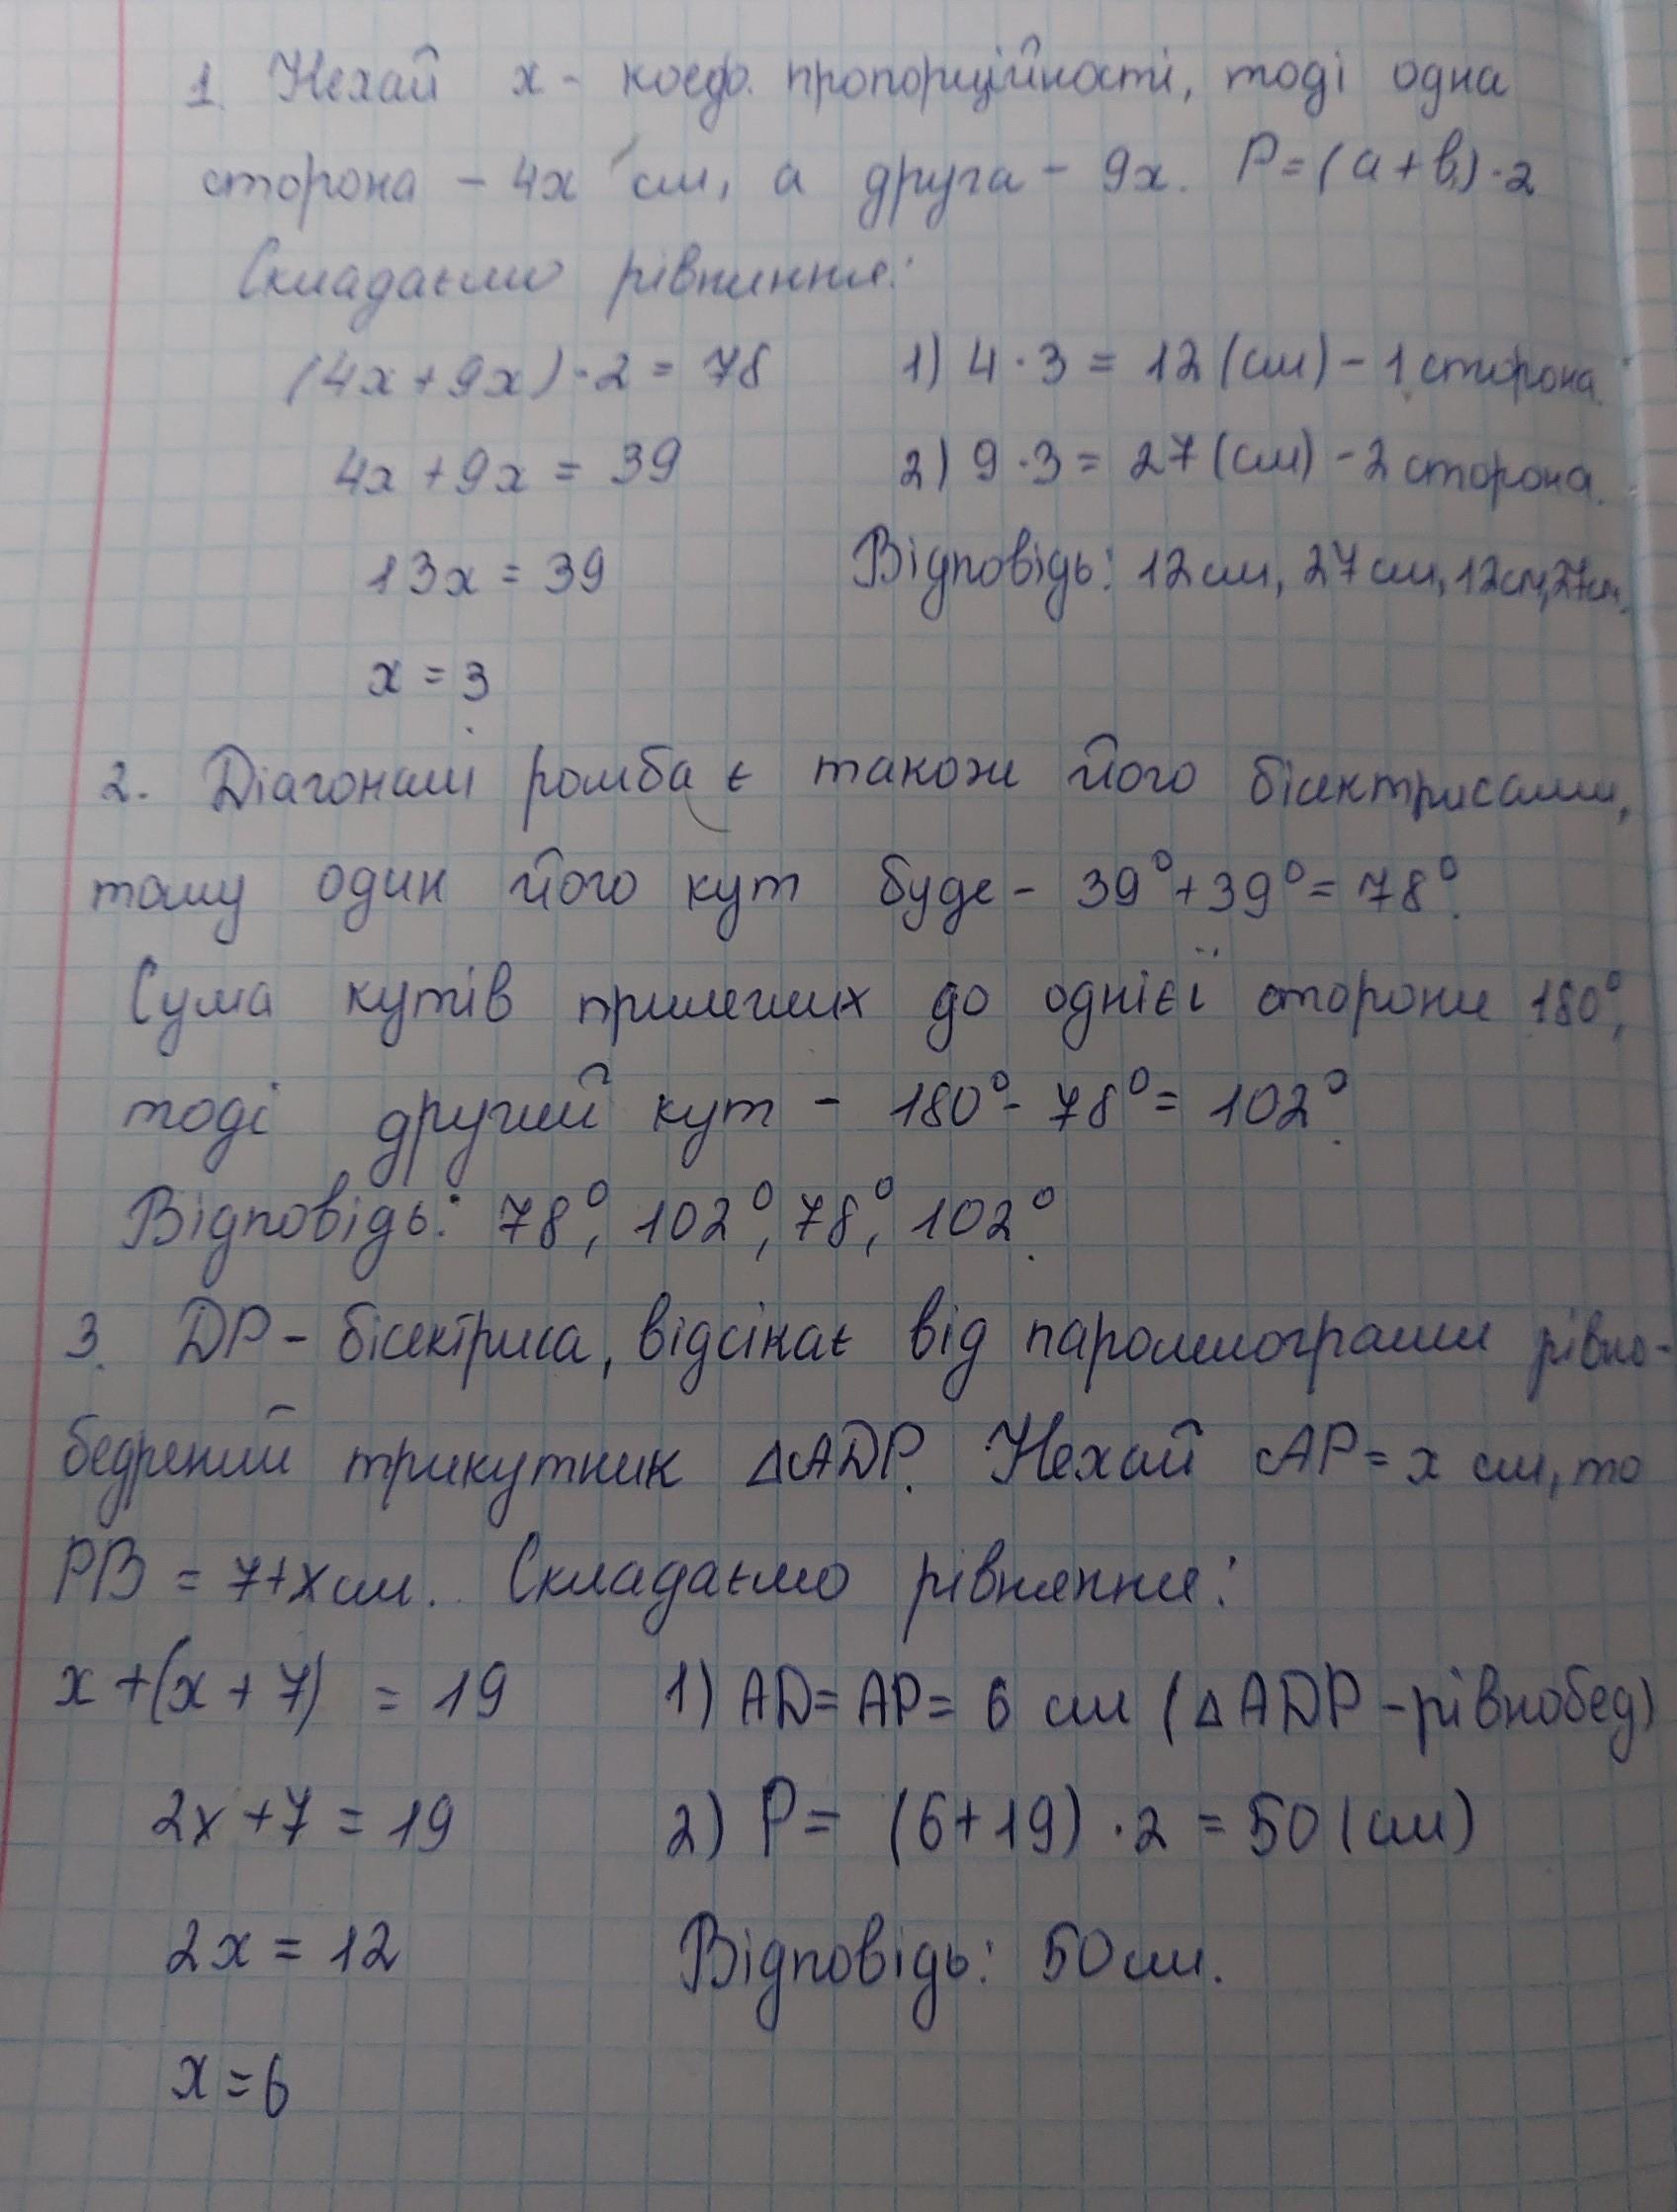 1. Нехай х - коеф. пропорційності, тоді одна
сторона - 4х см, а друга - 9х. Р=(а+в)·2
Складаємо рівняння:
(4х+9х)·2=78
1) 4·3=12(см)-1 сторона.
4х+9х=39
2) 9·3=27(см)-2 сторона.
13х=39
Відповідь: 12см, 27см, 12см, 27см.
х=3
2. Діагоналі ромба є також його бісектрисами,
тому один його кут буде - 39°+39°=78°.
Сума кутів прилеглих до однієї сторони 180°,
тоді другий кут - 180°-78°=102°.
Відповідь: 78°, 102°, 78°, 102°.
3. DP - бісектриса, відсікає від паролелограми рівно-
бедрений трикутник △ADP. Нехай AP=х см, то
PB=7+х см. Складаємо рівняння:
х+(х+7)=19
1) AD=AP=6 см (△ADP-рівнобед)
2х+7=19
2) P=(6+19)·2=50(см)
2х=12
Відповідь: 50см.
х=6